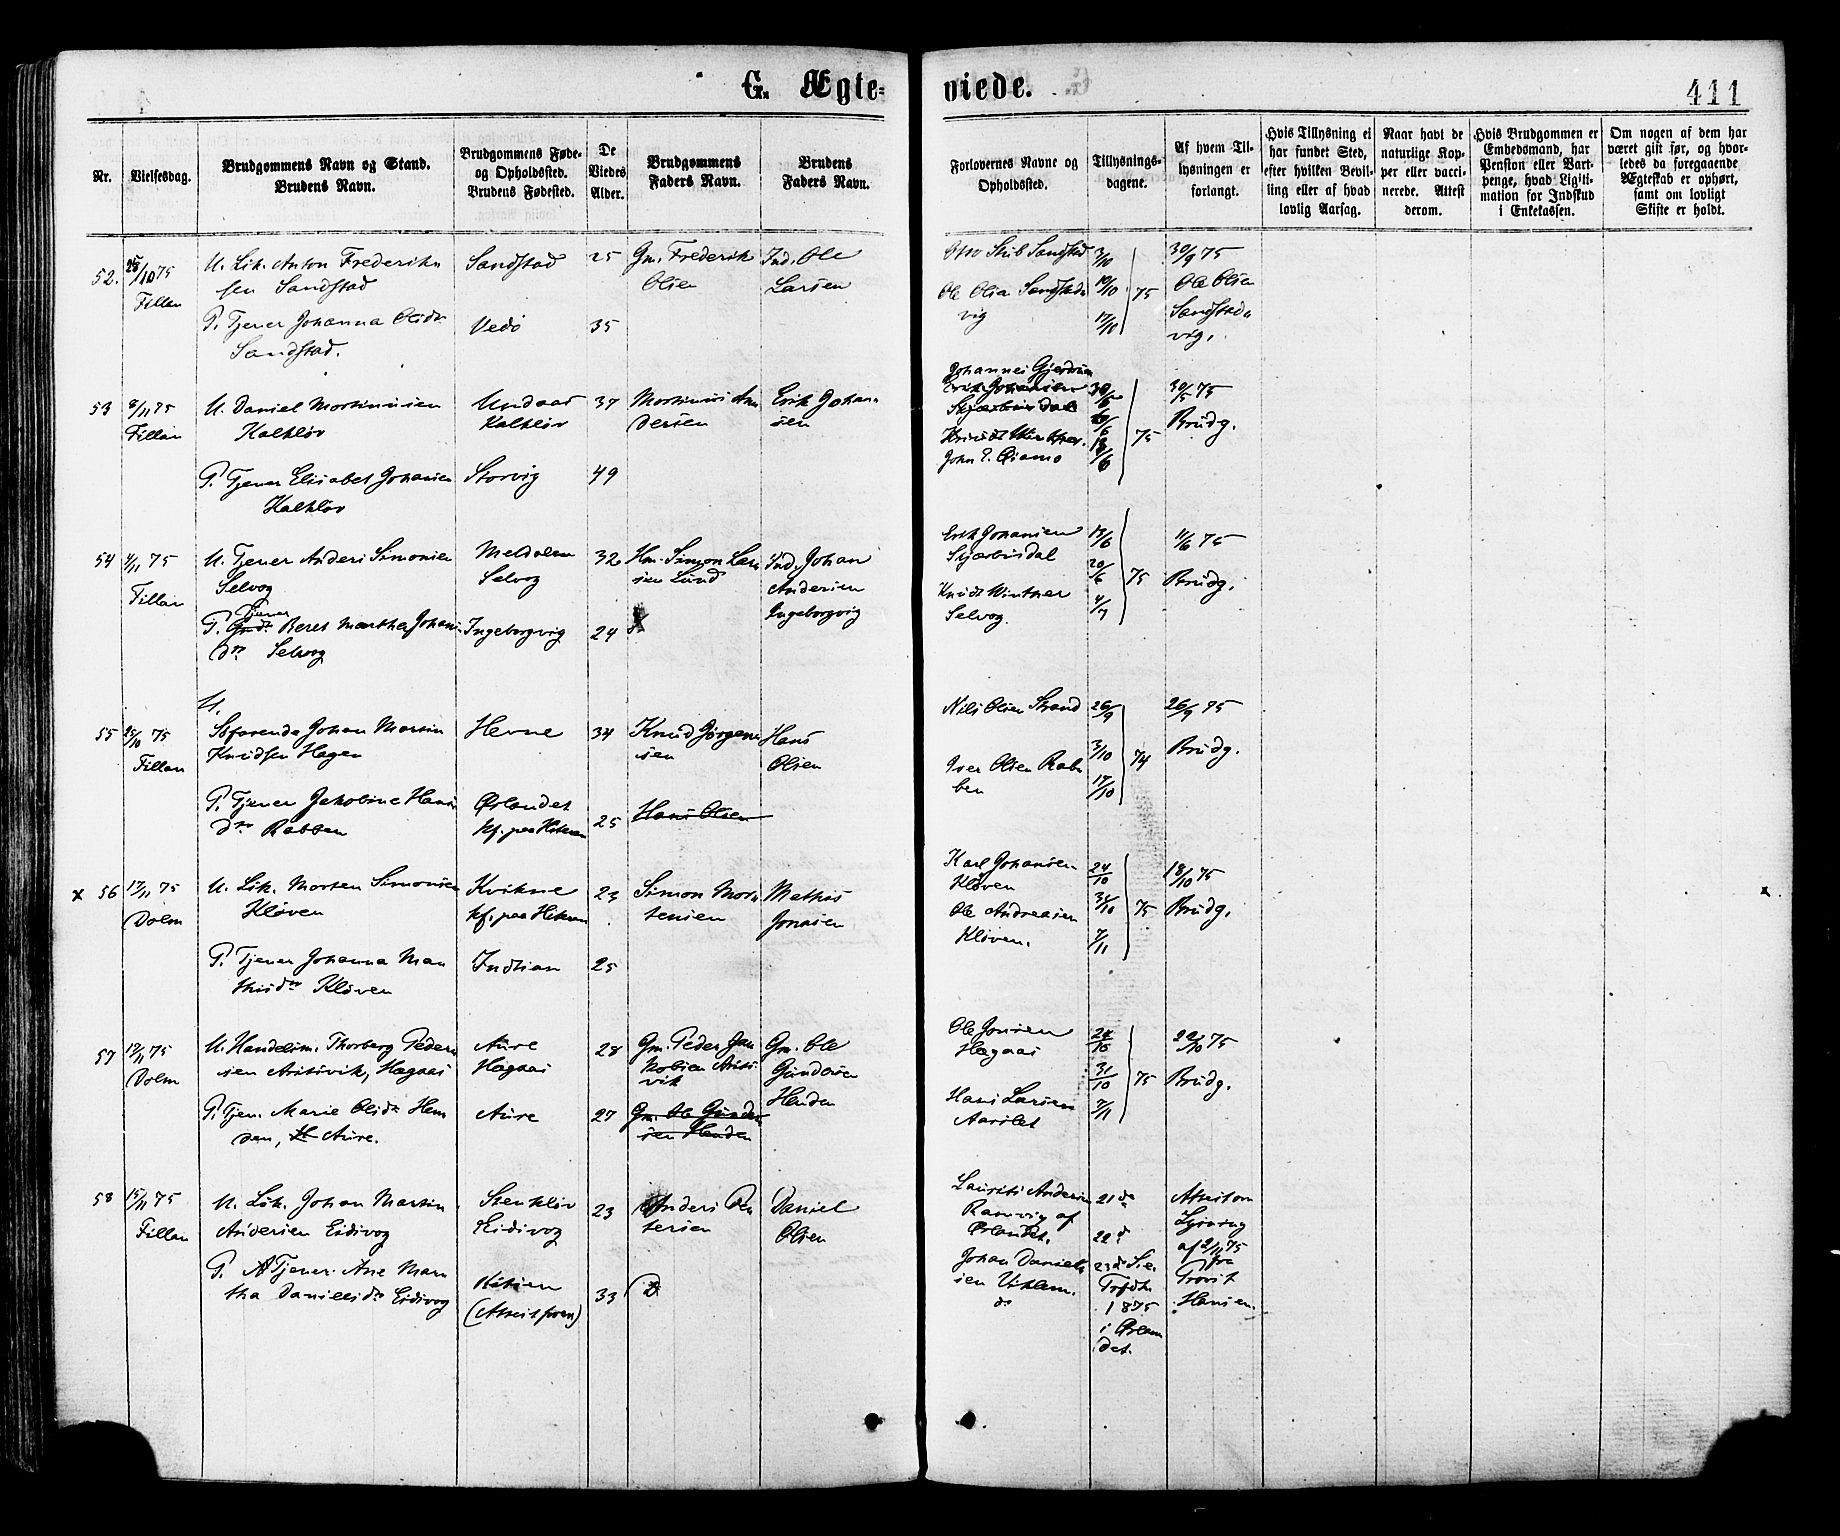 G. Ægte-
viede.
411
Nr.
Vielsesdag.
Brudgommens Navn og Stand.
Brudens Navn.
Brudgommens Føde-
og Opholdssted.
Brudens Fødested.
De
Viedes
Alder.
Brudgommens
Faders Navn.
Brudens
Faders Navn.
Forlovernes Navne og
Opholdssted.
Tillysnings-
dagene.
Af hvem Til-
lysningen er
forlangt.
Hvis Tillysning ei
har fundet Sted,
efter hvilken Bevil-
ling eller af hvad
lovlig Aarsag.
Naar havt de
naturlige Kop-
per eller vacci-
nerede. Attest
derom.
Hvis Brudgommen er
Embedsmand, har
Pension eller Vart-
penge, hvad Ligiti-
mation for Indskud
i Enkekassen.
Om nogen af dem har
været gift før, og hvor-
ledes da foregaaende
Ægteskab er ophørt,
samt om lovligt
Skifte er holdt.
52. 25/10 75
Fillan
U. Lsk. Anton Frederik-
sen Sandstad
P. Tjener Johanna Olsdr
Sandstad.
Sandstad
Vedø
25
35
Gm. Frederik
Olsen
Ind. Ole
Larsen
Sandstad
Ole Olsen Sandstad-
vig
3/10
10/10
17/10
75
30/9 75
Ole Olsen
Sandstad-
vig.
53 8/11 75
Fillan
U. Daniel Martinusen
Kalkløv
P. Tjener Elisabet Johansen
Kalkløv
Undaas
Kalkløv
Storvig
37
49
Martinus An-
dersen
Erik Johan-
sen
Johannes
John P. Qvamo
75
30/5 75
Brudg.
54 4/11 75
Fillan
U. Tjener Anders Simonsen
Selvog
Tjener
P. Beret Martha Johans-
dr Selvog
Meldalen
Selvog
Ingeborgvig
32
24
Hm. Simon Lar-
sen Lund
Ind. Johan
Andersen
Ingeborgvig
Erik Johansen
Skjærbusdal
Knudt Winther
Selvog.
13/6
20/6
4/7
75
11/6 75
Brudg.
U.
55 25/10 75
Fillan
Søfarende Johan Martin
Knudsen Hagen
P. Tjener Jakobine Hans-
dr Rabben
Hevne
Ørlandet
kf. paa Hitteren
34
25
Knud Jørgen-
sen
Hans Olsen
Hans
Olsen
Nils Olsen Strand
Iver Olsen Rab-
ben
26/9
3/10
17/10
74
26/9 75
Brudg.
x 56 17/11 75
Dolm
U. Lsk. Morten Simonsen
Kløven
P. Tjener Johanna Ma-
thisdr Kløven
Kvikne
kf. paa Hitteren
Indsian
23
25
Simon Mor-
tensen
Mathis
Jonsen
Karl Johansen
Kløven
Ole Andreasen
Kløven.
24/10
31/10
7/11
75
18/10 75
Brudg.
57 19/11 75
Dolm
U. Handelsm. Thorberg Peder-
sen Aresvik, Hægaas
P. Tjen. Marie Olsdr Hen-
den, Aure.
Aure
Hægaas
Aure
28
27
Gm. Peder Ja-
kobsen Ares-
vik
Gm. Ole Gunder-
sen Henden
Gm. Ole
Gundersen
Henden
Ole Jonsen
Hægaas
Hans Larsen
Aarslet
24/10
31/10
7/11
75
22/10 75
Brudg.
58 15/11 75
Fillan
U. Lsk. Johan Martin
Andersen Eidsvog
P. Tjener Ane Mar-
tha Danielsdr Eidsvog
Stenkløv
Eidsvog
Hitteren
(Attest
23
33
Anders Pe-
tersen
Daniel
Olsen
Laurits Andersen
Ramvig af
Ørlandet.
Johan Daniel-
sen
do
21de
22d
23d S. e.
Trefdh.
1875
i Ørlan-
det.
Attest om
Lysning
af 2/11 75
fra
Provst
Hansen.